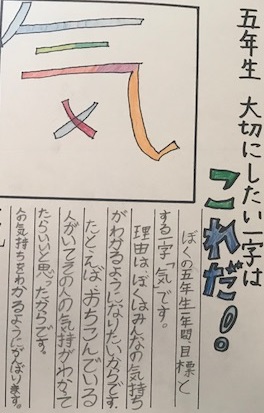 五年生 大切にしたい一字は
これだ!
気
ぼくの五年生一年間目標と
する一字「気」です。
理由は、ぼくはみんなの気持ち
がわかるようになりたいからです。
たとえば、おちこんでいる
人がいてその人の気持がわかて
たらいいと思ったからです。
人の気持ちをわかるようにがんばります。